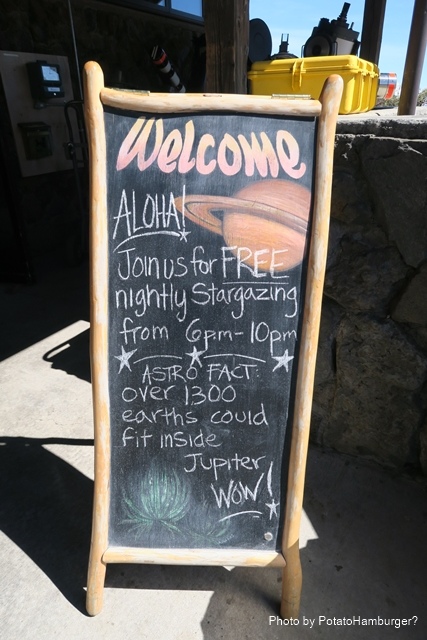 Welcome
ALOHA!
Join us for FREE
nightly Stargazing
from 6pm-10pm
ASTRO FACT:
over 1300
earths could
fit inside
Jupiter
WOW!
Photo by PotatoHamburger?